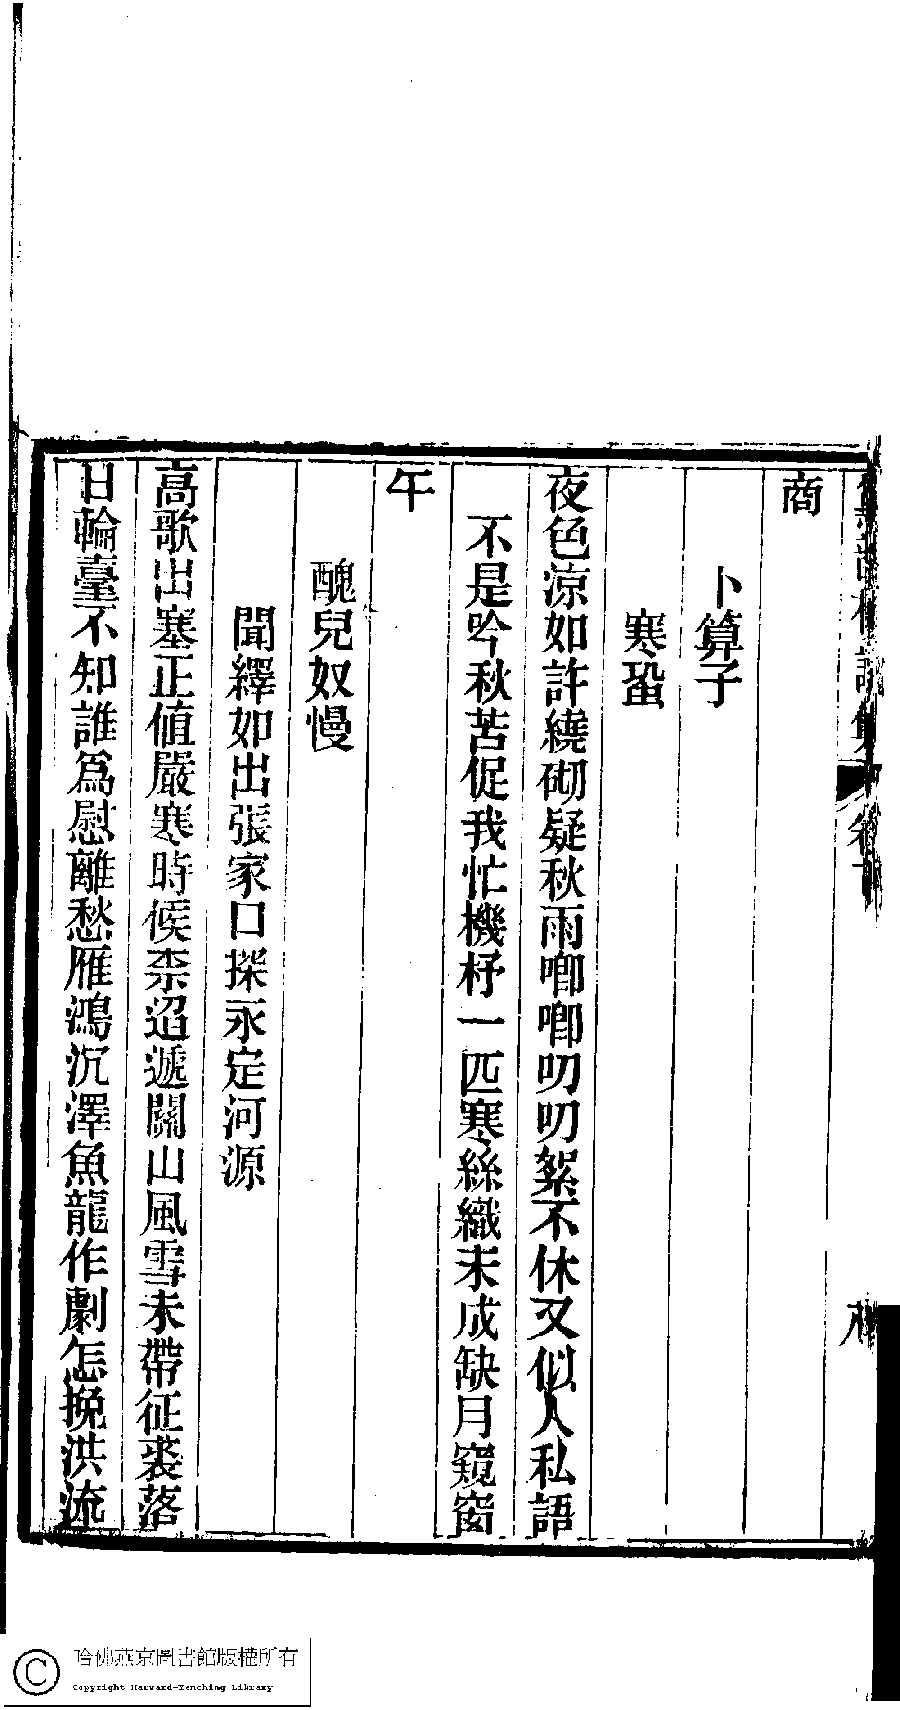 商
卜算子
寒蛩
夜色涼如許繞砌疑秋雨唧唧叨叨絮不休又似人私語
不是吟秋苦促我忙機杼一匹寒絲織未成缺月窺窗
午
醜兒奴慢
聞繹如出張家口探永定河源
高歌出塞正值嚴寒時候柰迢遞關山風雪未帶征裘落
日輪臺不知誰爲慰離愁雁鴻沉澤魚龍作劇怎挽洪流
哈佛燕京圖書館版權所有
Copyright Harvard-Yenching Library